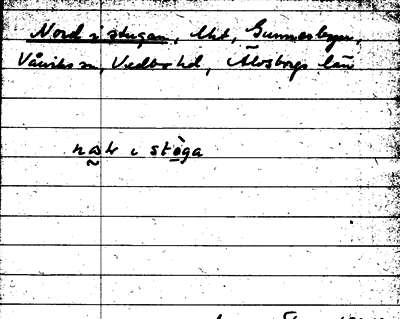 Nord i stugan, Mt, Gunnarsbyn,
Vårviks sn, Vedbo hd, Älvsborgs län
i stöga